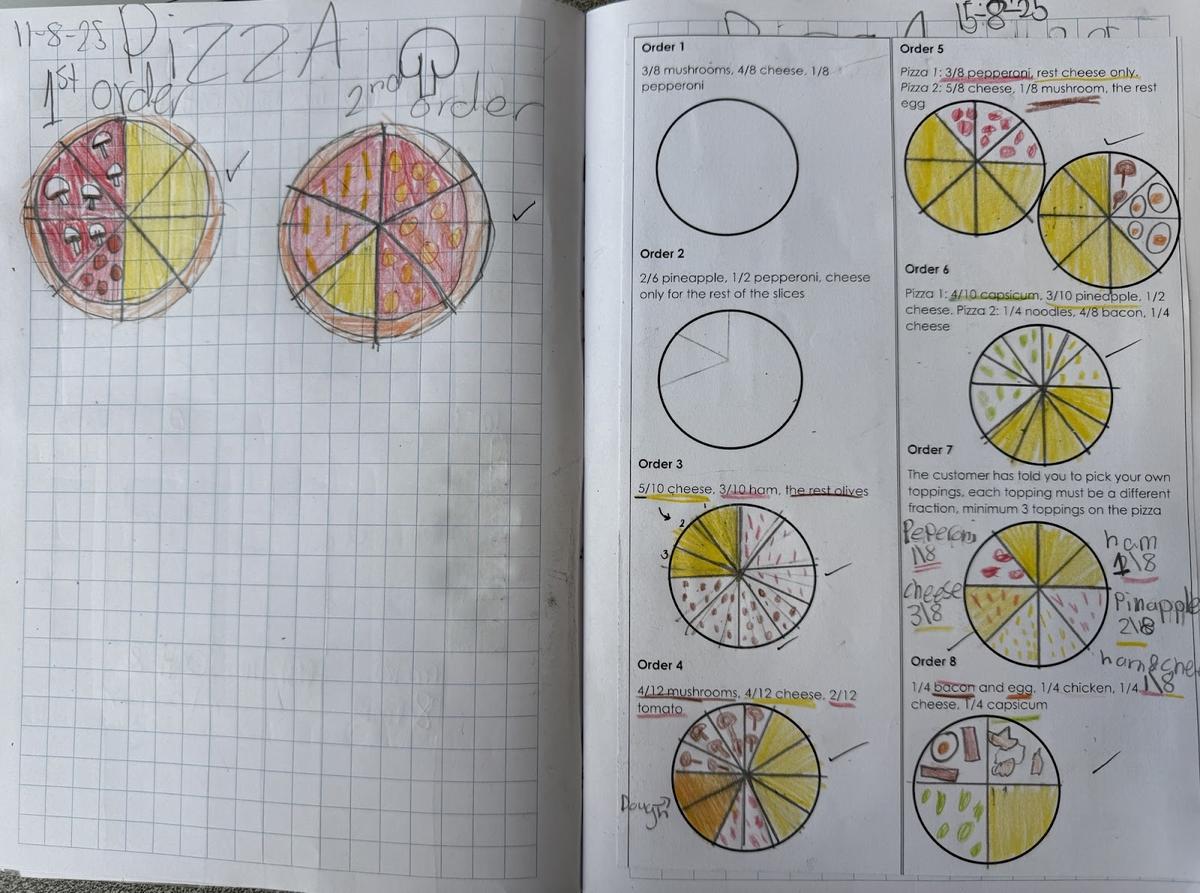 11-8-25 PizzA
1st order
2nd order
15-8-25
Order 1
3/8 mushrooms, 4/8 cheese, 1/8
pepperoni
Order 2
2/6 pineapple, 1/2 pepperoni, cheese
only for the rest of the slices
Order 3
5/10 cheese, 3/10 ham, the rest olives
1
2
3
Order 4
4/12 mushrooms, 4/12 cheese, 2/12
tomato
Dough
Order 5
Pizza 1: 3/8 pepperoni, rest cheese only.
Pizza 2: 5/8 cheese, 1/8 mushroom, the rest
egg
Order 6
Pizza 1: 4/10 capsicum, 3/10 pineapple, 1/2
cheese. Pizza 2: 1/4 noodles, 4/8 bacon, 1/4
cheese
Order 7
The customer has told you to pick your own
toppings, each topping must be a different
fraction, minimum 3 toppings on the pizza
PePeroni
1\8
cheese
3\8
ham
1\8
Pinapple
2\8
ham & che
1\8
Order 8
1/4 bacon and egg, 1/4 chicken, 1/4
cheese, 1/4 capsicum